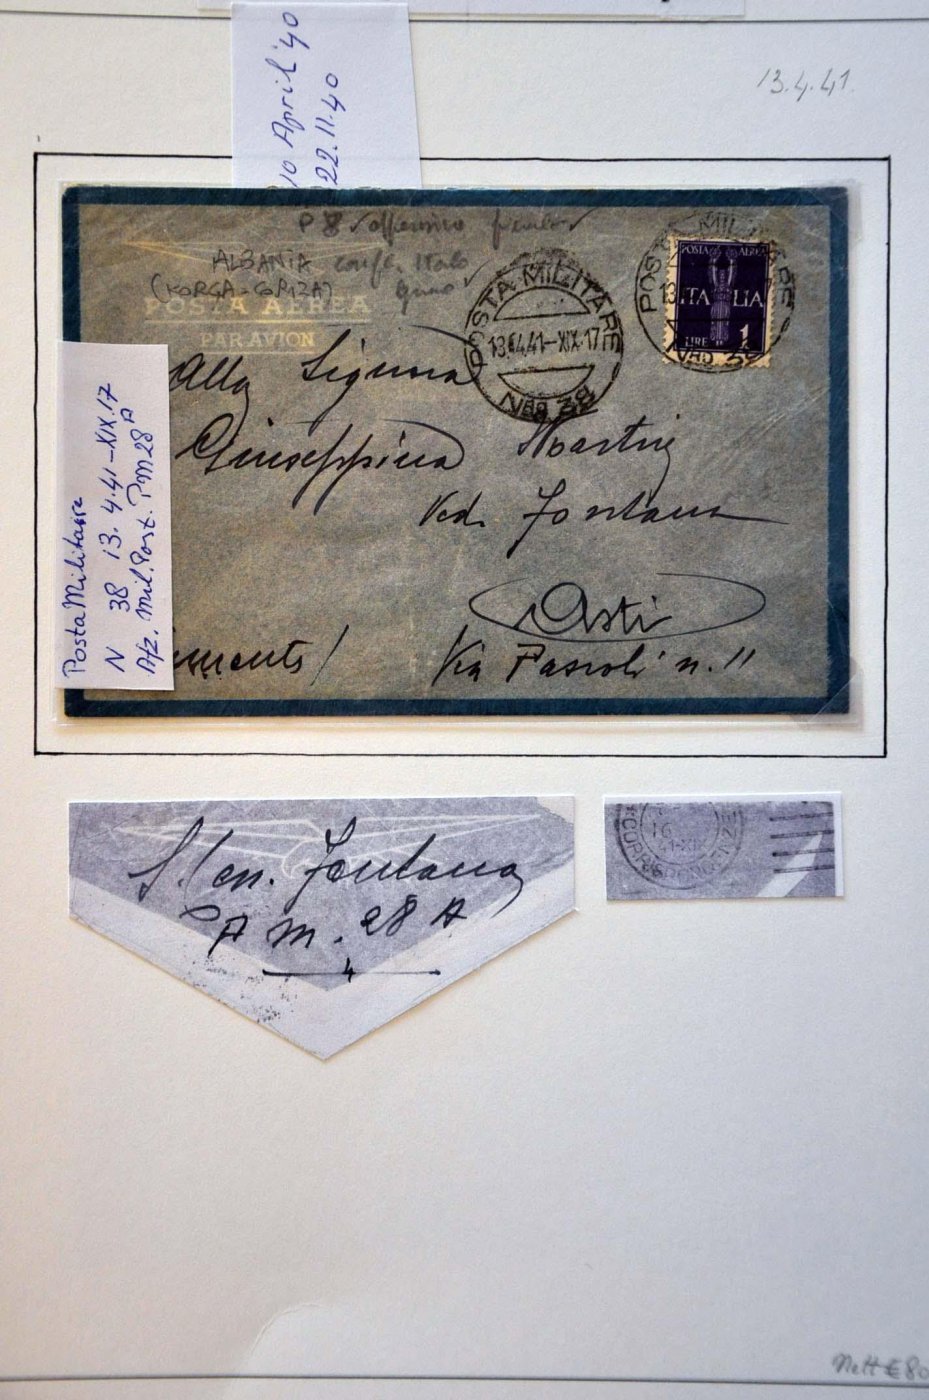 10 April '40
22.11.40
13.4.41.
P 8
ALBANIA confl. Italo
(KORÇA-CORIZA)
POSTA AEREA
PAR AVION
POSTA MILITARE
13.4.41-XIX.17
NRO. 38
POSTA MILITARE
13
NRO. 38
POSTA AEREA
ITALIA
LIRE 1
Alla Signora
Giuseppina
Ved. Fontana
Asti
Via Pacioli n. 11
Posta Militare
N 38 13.4.41-XIX.17
Afz. Mil. Post. PM 28 A
S. Ten. Fontana
P.M. 28 A
4
CORRISPONDENZE
16
41-XIX
Nett € 80